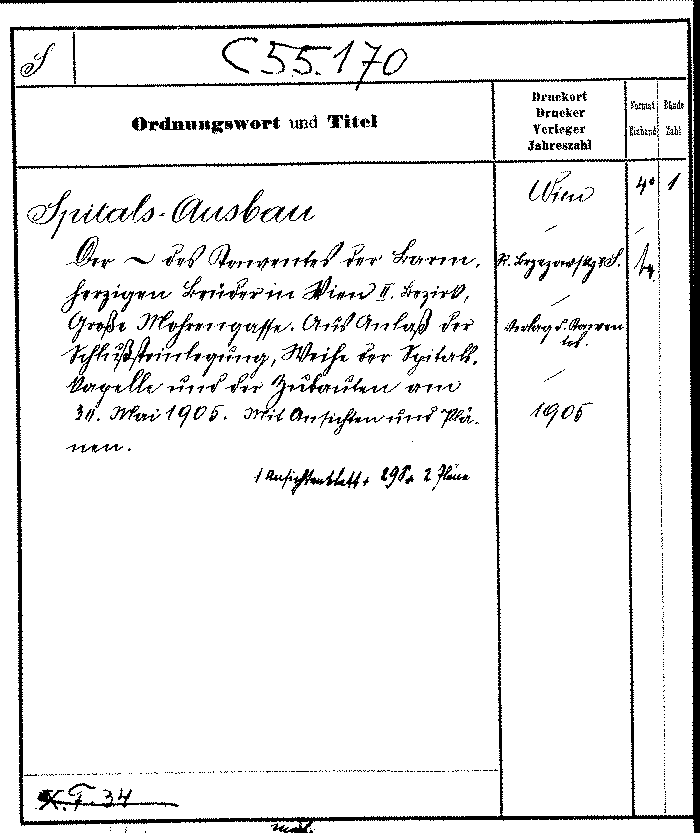 S
C 55.170
Ordnungswort und Titel
Druckort
Drucker
Verleger
Jahreszahl
Format
Einband
Bände
Zahl
Spitals-Ausbau
Der ~ des Konventes der Barm-
herzigen Brüder in Wien II. Bezirk,
Große Mohrengasse. Aus Anlaß der
Schlußsteinlegung, Weihe der Spitals-
kapelle und der Zubauten am
30. Mai 1905. Mit Ansichten und Plä-
nen.
1 Ansichtenblatt, 29 S., 2 Pläne
Wien
R. Brzezowsky & S.
Verlag d. Konven
tes.
1905
4°
1
X.F. 34